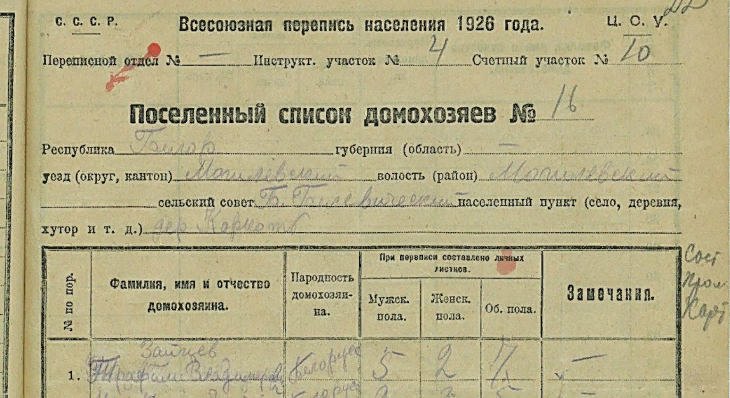 С. С. С. Р. Всесоюзная перепись населения 1926 года. Ц. С. У.
Переписной отдел № — Инструкт. участок № 4 Счетный участок № 10
Поселенный список домохозяев № 16
Республика губерния (область) —
уезд (округ, кантон) Могилевский волость (район) Могилевский
сельский совет населенный пункт (село, деревня,
хутор и т. д.) дер
№ по пор. Фамилия, имя и отчество домохозяина. Народность домохозяи-на. При переписи составлено личных листков. Замечания.
Мужск. пола. Женск. пола. Об. пола.
Зайцев
1. Белорусс 5 2 7 —